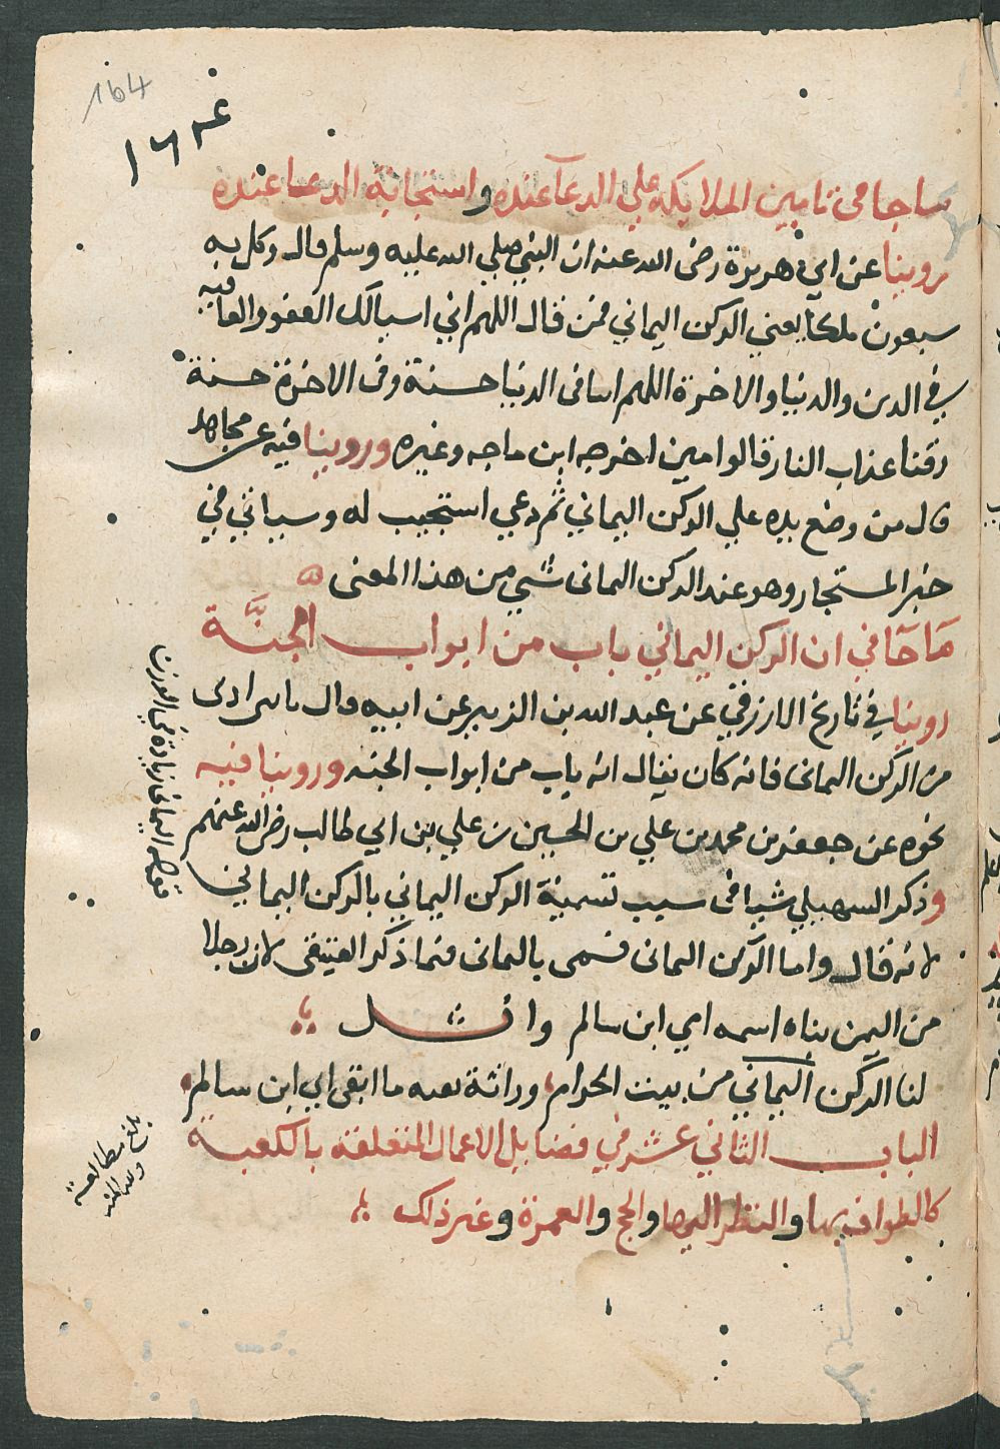 164
١٦٤
ما جا في تامين الملايكة علي الدعآ عنده واستجابة الدعا عنده
روينا عن ابي هريرة رضي الله عنه ان النبي صلي الله عليه وسلم قال وكل به
سبعون ملكا يعني الركن اليماني فمن قال اللهم اني اسيالك العفو والعافيه
في الدين والدنيا والاخرة اللهم اتنا في الدنيا حسنة وفي الاخرة حسنة
وقنا عذاب النار قالوا امين اخرجه ابن ماجه وغيره وروينا فيه عن مجاهد
قال من وضع يده علي الركن اليماني ثم دعي استجيب له وسياتي في
خبر المستجار وهو عند الركن اليماني شي من هذا المعنى
مَا جَآ في ان الركن اليماني باب من ابواب الجنَّة
روينا في تاريخ الازرقي عن عبد الله بن الزبير عن ابيه قال يا بني ادنى
من الركن اليماني فانه كان يقال انه باب من ابواب الجنه وروينا فيه
نحوه عن جعفر بن محمد بن علي بن الحسين بن علي بن ابي طالب رضي الله عنهم
وذكر السهيلي شيا في سبب تسمية الركن اليماني بالركن اليماني
لانه قال واما الركن اليماني فسمى باليماني فيما ذكر القتيقي لان رجلا
من اليمن بناه اسمه ابي ابن سالم وانشد
لنا الركن اليماني من بيت الحرام وراثة بقيه ما ابقى ابي ابن سالم
الباب الثاني عشر في فضايل الاعمال المتعلقة بالكعبة
كالطواف بها والنظر اليها والحج والعمرة وغير ذلك
قوله اليماني زيادة في الوزن
بلغ مطالعة
ولله المنه